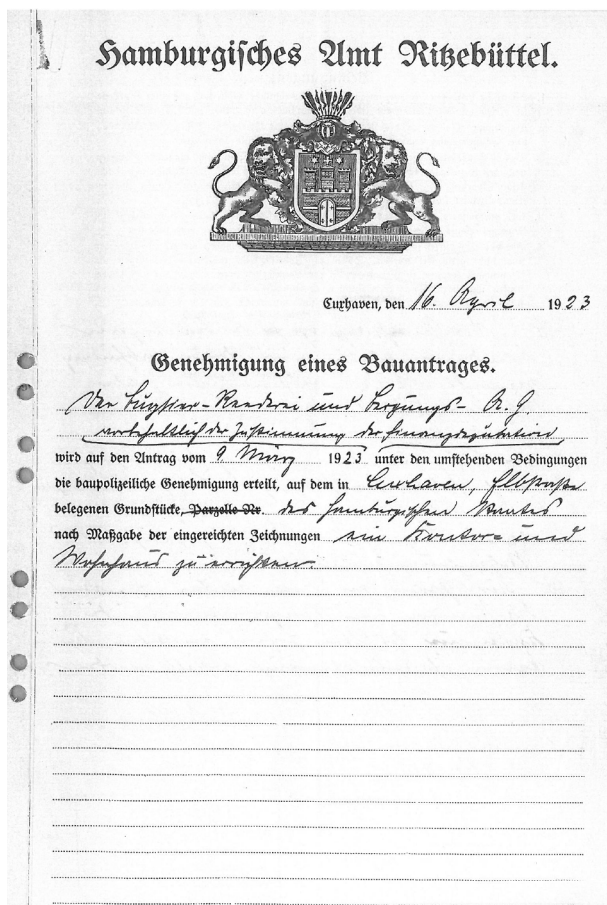 Hamburgisches Amt Ritzebüttel.
Cuxhaven, den 16. April 1923
Genehmigung eines Bauantrages.
Der Bugsier-Reederei und Bergungs- A. G
vorbehaltlich der Zustimmung der Finanzdeputation
wird auf den Antrag vom 9 März 1923 unter den umstehenden Bedingungen
die baupolizeiliche Genehmigung erteilt, auf dem in Cuxhaven, Elbstraße
belegenen Grundstücke, Parzelle Nr. des hamburgischen Staates
nach Maßgabe der eingereichten Zeichnungen ein Kontor- und
Wohnhaus zu errichten.